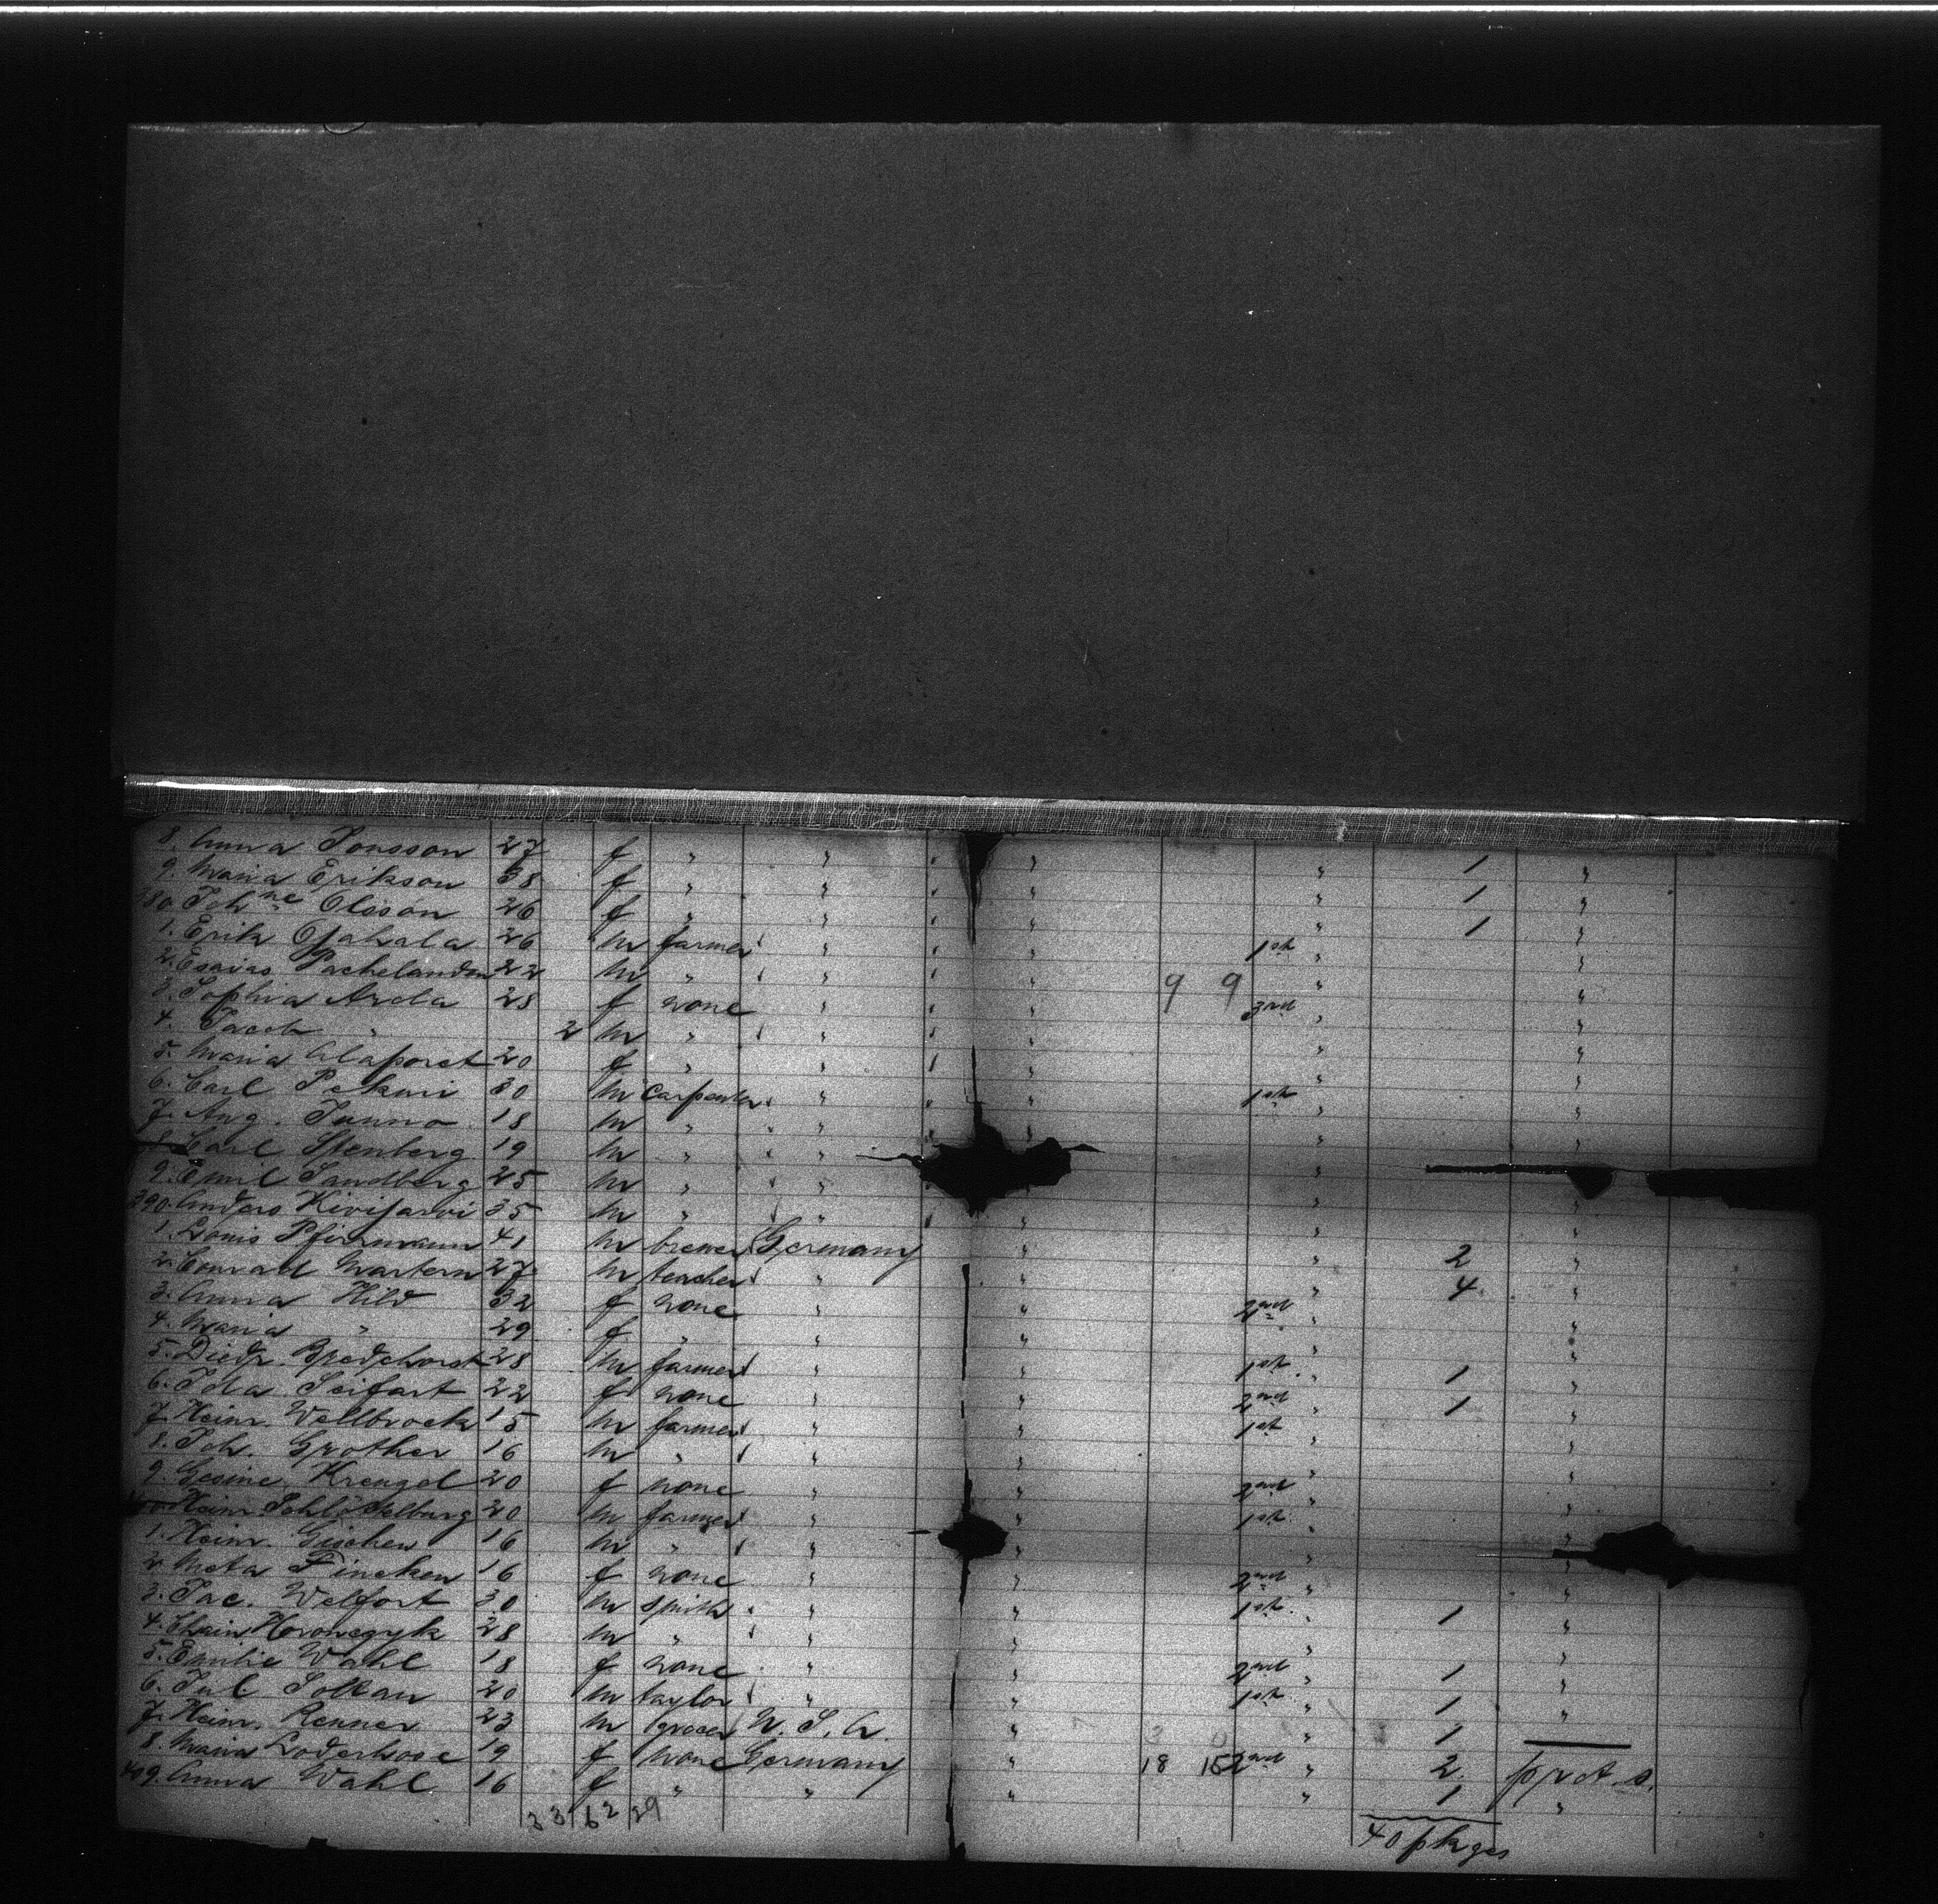 8. Anna Jonsson 27 f " " " " " 1 "
9. Maria Erikson 38 f " " " " " 1 "
380. Joh ne Olsson 26 f " " " " " 1 "
1. Erik 26 m farmer " " " 1st " "
2. Esaias 22 m " " " " 9 9 " "
3. Sophia Arola 28 f none " " " 3rd " "
4. Jacob " 2 m " " " " " "
5. Maria 20 f " " " " " "
6. Carl Pekuri 30 m carpenter " " " 1st " "
7. Aug. Junno 18 m " " " " " "
8. Carl Stenberg 19 m " " " "
9. Emil Sandberg 25 m " " " "
390. Anders Kivijarvi 35 m " " " " " "
1. Louis Pfirrmann 41 m brewer Germany " " 2 "
2. Conrad Martern 27 m teacher " " " 4 "
3. Anna Hild 32 f none " " 2nd " "
4. Maria " 29 f " " " " "
5. Diedr. 28 m farmer " " 1st " 1 "
6. Ida Seifart 22 f none " " 2nd " 1 "
7. Heinr. Wellbrock 15 m farmer " " 1st " "
8. Joh. Grother 16 m " " " " "
9. Gesine Krengel 20 f none " " 2nd " "
400 Heinr. 20 m farmer " " 1st " "
1. Heinr. Gischen 16 m " " " "
2. Meta Fincken 16 f none " " 2nd " "
3. Jac. Welfort 30 m smith " " 1st " 1 "
4. Chain 28 m " " " " "
5. Emilie Wahl 18 f none " " 2nd " 1 "
6. Jul Soltau 20 m taylor " " 1st " 1 "
7. Heinr. Renner 23 m grocer U. S. A. " " 1
8. Maria Loderhose 19 f none Germany " 18 15 2nd " 2 prct. s.
409. Anna Wahl 16 f " " " " 1 "
33 62 29
40 pkges